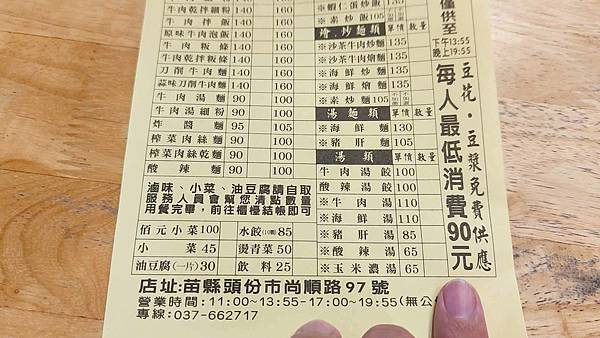 牛肉乾拌細粉 140 160
牛肉拌飯 140 160
原味牛肉泡飯 140 160
牛肉粄條 140 160
牛肉乾拌粄條 140 160
刀削牛肉麵 140 160
蒜味刀削牛肉麵 140 160
牛肉湯麵 90 100
牛肉湯細粉 90 100
炸醬麵 95 105
榨菜肉絲麵 90 100
榨菜肉絲乾麵 90 100
酸辣麵 90 100
滷味、小菜、油豆腐請自取
服務人員會幫您清點數量
用餐完畢，前往櫃檯結帳即可
佰元小菜 100 水餃(10顆) 85
小菜 45 燙青菜 50
油豆腐(一片) 30 飲料 25
※蝦仁蛋炒飯
※素炒飯 105
燴．炒麵類 單價 數量
※沙茶牛肉炒麵 135
※沙茶牛肉燴麵 135
※海鮮炒麵 135
※海鮮燴麵 135
※素炒麵 105
湯麵類 單價 數量
※海鮮麵 130
※豬肝麵 105
湯類 單價 數量
牛肉湯餃 100
酸辣湯餃 100
※牛肉湯 110
※海鮮湯 110
※豬肝湯 85
※酸辣湯 65
※玉米濃湯 65
僅供至
下午13:55
晚上19:55
豆花．豆漿免費供應
每人最低消費90元
店址:苗縣頭份市尚順路97號
營業時間:11:00~13:55-17:00~19:55(無公
專線:037-662717